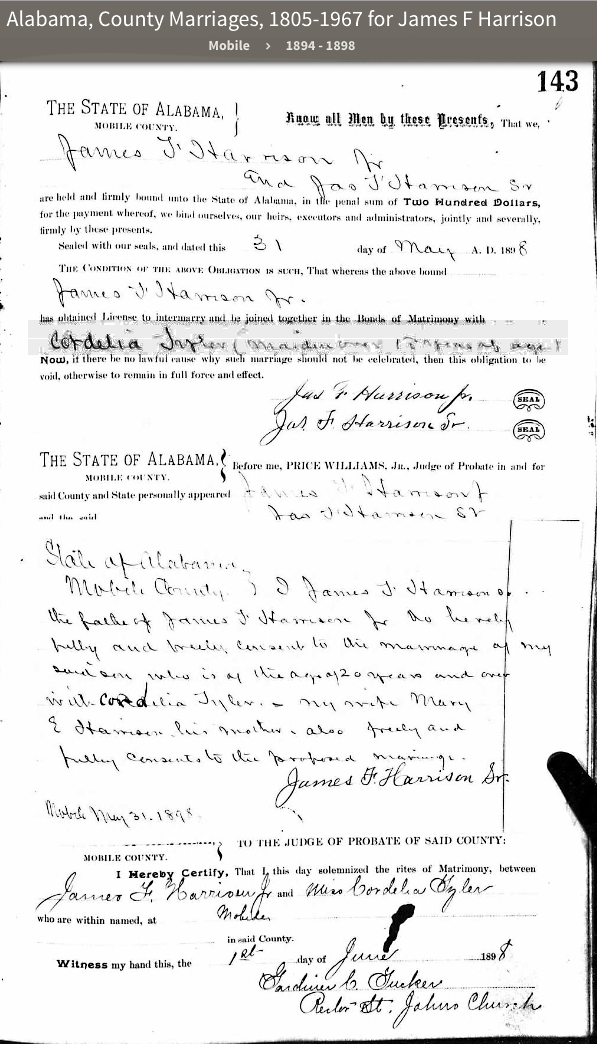 Alabama, County Marriages, 1805-1967 for James F Harrison
Mobile > 1894 - 1898
143
THE STATE OF ALABAMA,
MOBILE COUNTY.
Know all Men by these Presents, That we,
James F Harrison Jr
and Jas F Harrison Sr
are held and firmly bound unto the State of Alabama, in the penal sum of Two Hundred Dollars,
for the payment whereof, we bind ourselves, our heirs, executors and administrators, jointly and severally,
firmly by these presents.
Sealed with our seals, and dated this 31 day of May A. D. 1898
THE CONDITION OF THE ABOVE OBLIGATION IS SUCH, That whereas the above bound
James F Harrison Jr.
has obtained License to intermarry and be joined together in the Bonds of Matrimony with
Cordelia Tyler (maiden over 18 years of age)
Now, if there be no lawful cause why such marriage should not be celebrated, then this obligation to be
void, otherwise to remain in full force and effect.
Jas F. Harrison Jr. SEAL
Jas. F Harrison Sr. SEAL
THE STATE OF ALABAMA,
MOBILE COUNTY.
Before me, PRICE WILLIAMS, JR., Judge of Probate in and for
said County and State personally appeared James F Harrison J
and the said Jas F Harrison Sr
State of Alabama,
Mobile County. I James F Harrison
the father of James F Harrison Jr do hereby
fully and freely consent to the marriage of my
said son who is of the age of 20 years and over
with Cordelia Tyler. & my wife Mary
E Harrison his mother also freely and
fully consents to the proposed marriage.
James F. Harrison Sr.
Mobile May 31. 1898.
TO THE JUDGE OF PROBATE OF SAID COUNTY:
MOBILE COUNTY.
I Hereby Certify, That I this day solemnized the rites of Matrimony, between
James F. Harrison Jr and Miss Cordelia Tyler
who are within named, at Mobile
in said County.
Witness my hand this, the 1st day of June 1898
Gardiner C. Tucker
Rector St. Johns Church